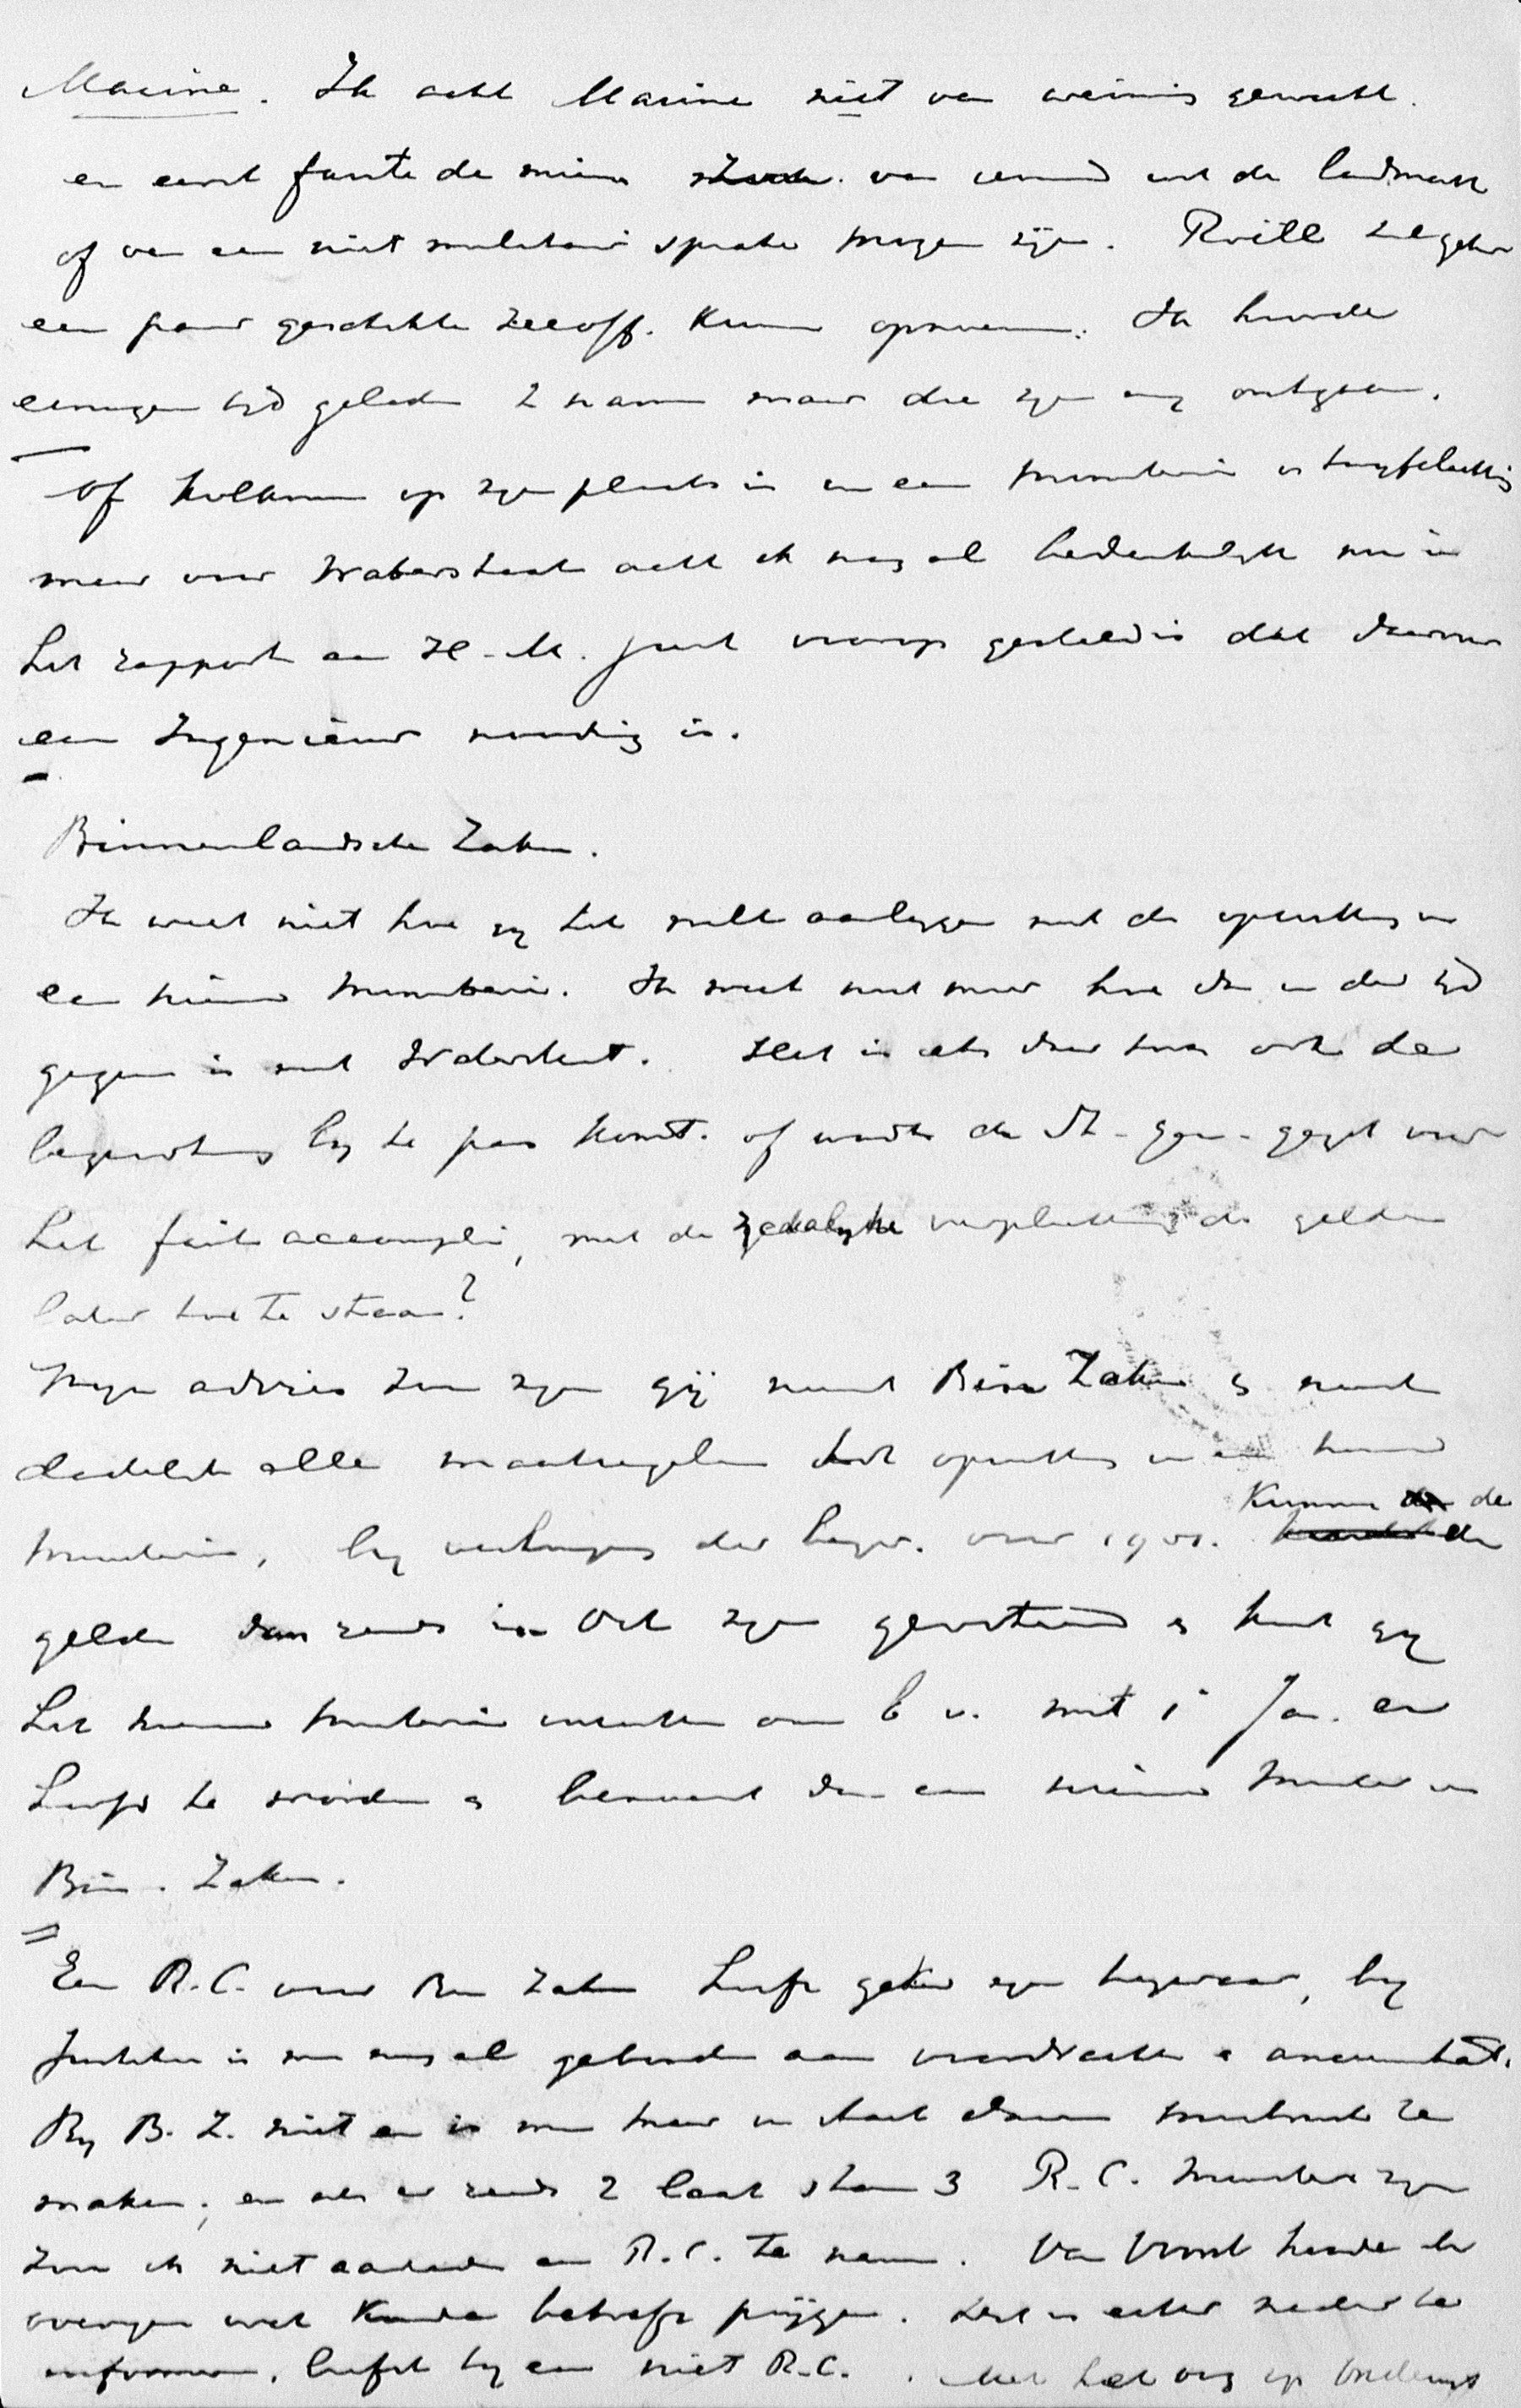 Marine. Ik acht Marine niet van weinig gewicht.
en eerst faute de mieux van iemand uit de landmacht
of van een niet militair sprake mogen zijn. Röell zal gehr
een paar geschikte zeeoff. kunnen opnoemen. Ik hoorde
eenigen tijd geleden 2 namen maar die zijn mij ontgaan.
Of Kolkman op zijn plaats is in een ministerie is twijfelachtig
maar voor Waterstaat acht ik nog al bedenkelijk nu in
het rapport aan H. M. juist voorop gesteld is dat daarvoor
een Ingenieur noodig is.
Binnenlandsche Zaken.
Ik weet niet hoe gij het wilt aanleggen met de oprichting van
een nieuw ministerie. Ik weet niet meer hoe dan in der tijd
gegaan is met Waterstaat. Het is iets daar toch ook de
begrooting bij te pas komt. of wordt de St. Gen. gezet voor
het fait accompli, met de zedelijke verplichting de gelden
later toe te staan?
Mijn advies zou zijn gij neemt Binn Zaken en neemt
dadelijk alle maatregelen tot oprichting van een nieuw
ministerie, bij verhooging der begr. voor 1901. Kunnen de
gelden dan reeds in Oct zijn gevoteerd en kunt gij
het nieuw ministerie inrichten om b v. met 1 Jan. er
Hoofd te worden en benoemt dan een nieuwe minister van
Bin. Zaken.
Een R.C. voor Bin Zaken heeft zeker zijn bezwaar, bij
Justitie is men nog al gebonden aan voordrachten en ancienniteit.
Bij B. Z. niet en is men meer in staat daar misbruik te
maken; en als er reeds 2 laat staan 3 R.C. ministers zijn
zou ik niet aanraden een R.C. te nemen. Van hoorde ik
overigens wat kunde betreft prijzen. Het is echter nader te
informeeren. liefst bij een niet R.C. . Met het oog op